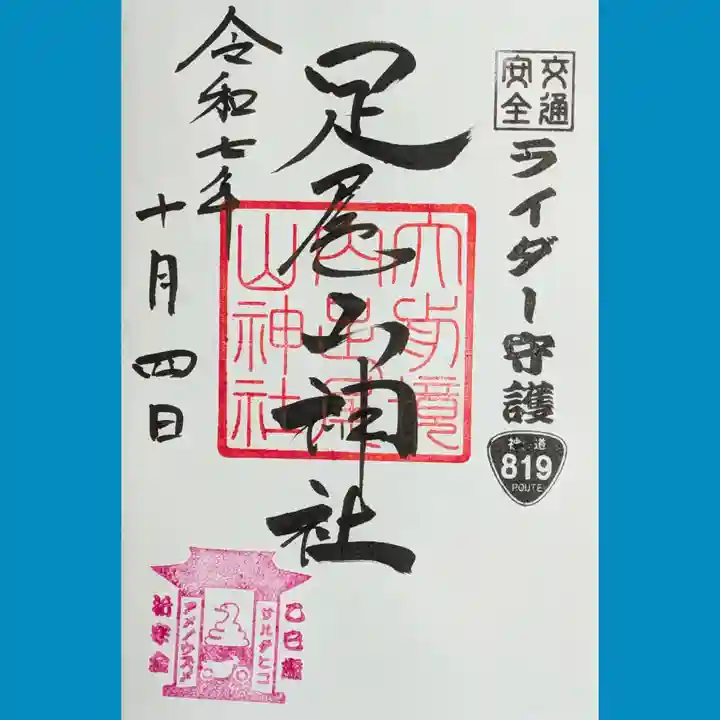 交通
安全
ライダー守護
神道
819
ROUTE
足尾山神社
山神社
令和七年
十月四日
乙巳歳
サルタヒコ
アメノウズメ